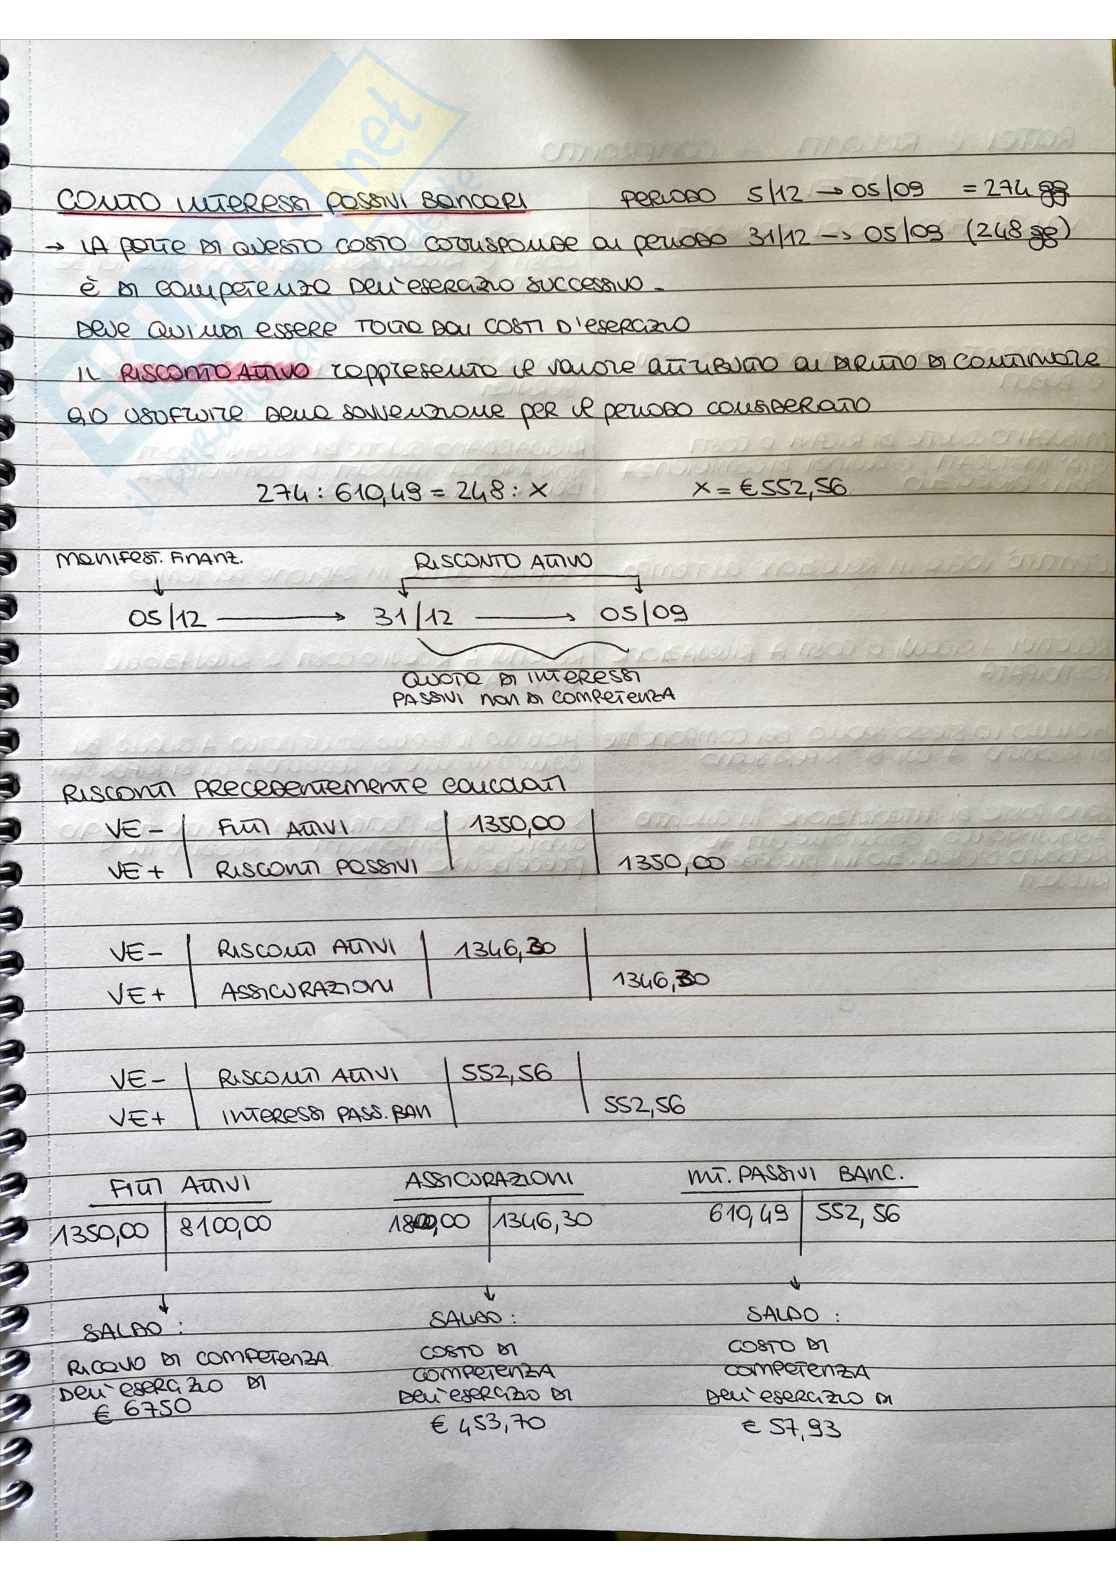 CONTO INTERESSI PASSIVI BANCARI PERIODO 5/12 → 05/09 = 274 gg
→ LA PARTE DI QUESTO COSTO CORRISPONDE AL PERIODO 31/12 → 05/09 (248 gg)
È DI COMPETENZA DELL'ESERCIZIO SUCCESSIVO.
DEVE QUINDI ESSERE TOLTO DAI COSTI D'ESERCIZIO
IL RISCONTO ATTIVO RAPPRESENTA IL VALORE ATTRIBUITO AL DIRITTO DI CONTINUARE
AD USUFRUIRE DELLA SOVVENZIONE PER IL PERIODO CONSIDERATO
274 : 610,49 = 248 : X X = € 552,56
MANIFEST. FINANZ. RISCONTO ATTIVO
05/12 → 31/12 → 05/09
QUOTA DI INTERESSI
PASSIVI NON DI COMPETENZA
RISCONTI PRECEDENTEMENTE CALCOLATI
VE- FITTI ATTIVI 1350,00
VE+ RISCONTI PASSIVI 1350,00
VE- RISCONTI ATTIVI 1346,30
VE+ ASSICURAZIONI 1346,30
VE- RISCONTI ATTIVI 552,56
VE+ INTERESSI PASS. BAN 552,56
FITTI ATTIVI ASSICURAZIONI INT. PASSIVI BANC.
1350,00 8100,00 1800,00 1346,30 610,49 552,56
SALDO : SALDO : SALDO :
RICAVO DI COMPETENZA COSTO DI COSTO DI
DELL'ESERCIZIO DI COMPETENZA COMPETENZA
€ 6750 DELL'ESERCIZIO DI DELL'ESERCIZIO DI
€ 453,70 € 57,93